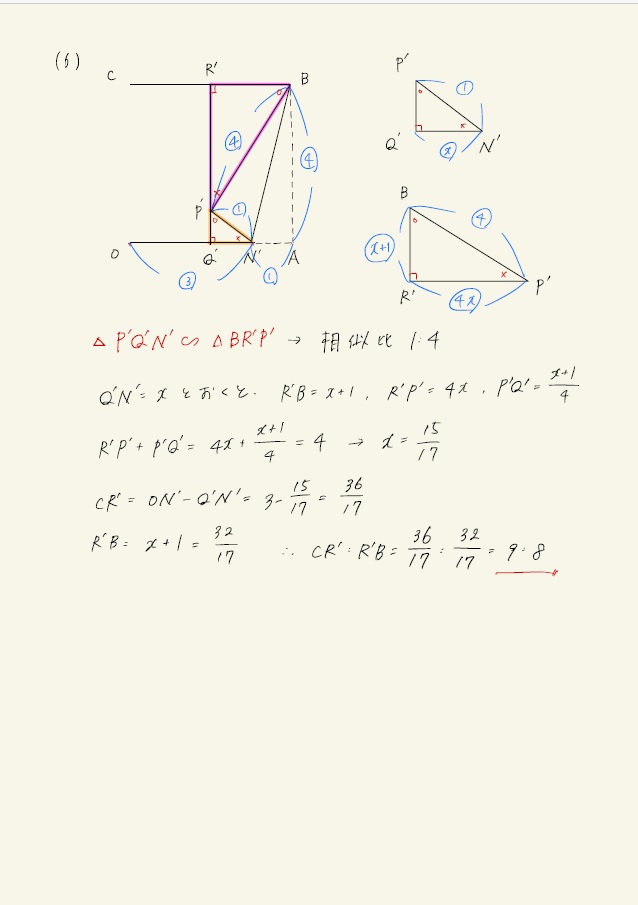 (6)
C R' B
④ ④
P' ①
O Q' N' A
③ ①
P' ①
Q' x N'
B ④
x+1
R' 4x P'
△P'Q'N' ∽ △BR'P' → 相似比 1:4
Q'N'=x とおくと. R'B=x+1, R'P'=4x, P'Q'=\frac{x+1}{4}
R'P'+P'Q'=4x+\frac{x+1}{4}=4 → x=\frac{15}{17}
CR'=ON'-Q'N'=3-\frac{15}{17}=\frac{36}{17}
R'B=x+1=\frac{32}{17} ∴ CR':R'B=\frac{36}{17}:\frac{32}{17}=9:8